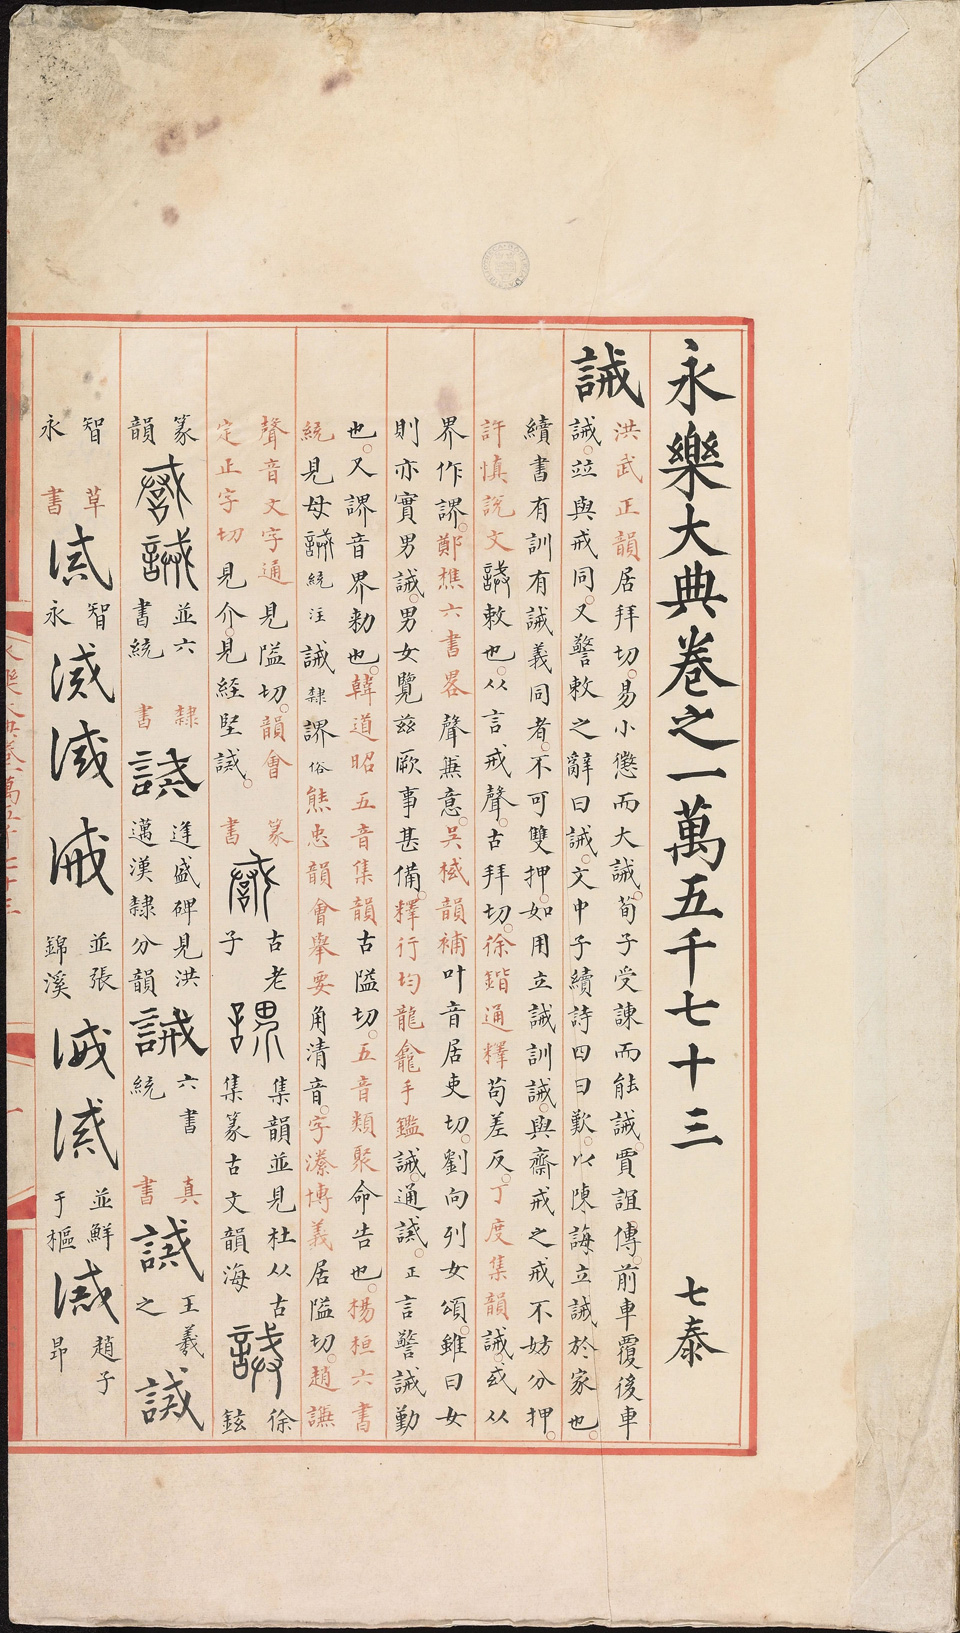 永樂大典卷之一萬五千七十三 七泰
誡 洪武正韻居拜切。易小懲而大誡。荀子受諫而能誡。賈誼傳。前車覆後車
誡。竝與戒同。又警敕之辭曰誡。文中子續詩四曰歎。以陳誨立誡於家也。
續書有訓有誡義同者。不可雙押。如用立誡訓誡。與齋戒之戒不妨分押。
許慎說文 誡敕也。从言戒聲。古拜切。徐鍇通釋苟差反。丁度集韻誡。或从
界作䛺。鄭樵六書畧聲無意。吳棫韻補叶音居吏切。劉向列女頌。雖曰女
則亦實男誡。男女覽兹厥事甚備。釋行均龍龕手鑑誡。通諴。正言警誡勤
也。又䛺音界勑也。韓道昭五音集韻古隘切。五音類聚命告也。楊桓六書
統見母誡統注誡隸䛺俗熊忠韻會舉要角清音。字潫博義居隘切。趙謙
聲音文字通見隘切。韻會
定正字切見介。見經堅諴。
篆書 古老子 集韻並見杜从古
集篆古文韻海 徐鉉
篆韻 誡 並六書統 隸書 誡 逢盛碑見洪邁漢隸分韻 誡 六書統 真書 誡 王羲之 誡
草書 智永 誡 智永 誡 誡 誡 並張錦溪 誡 誡 並鮮于樞 誡 趙子昂
永樂大典卷一萬五千七十三
一